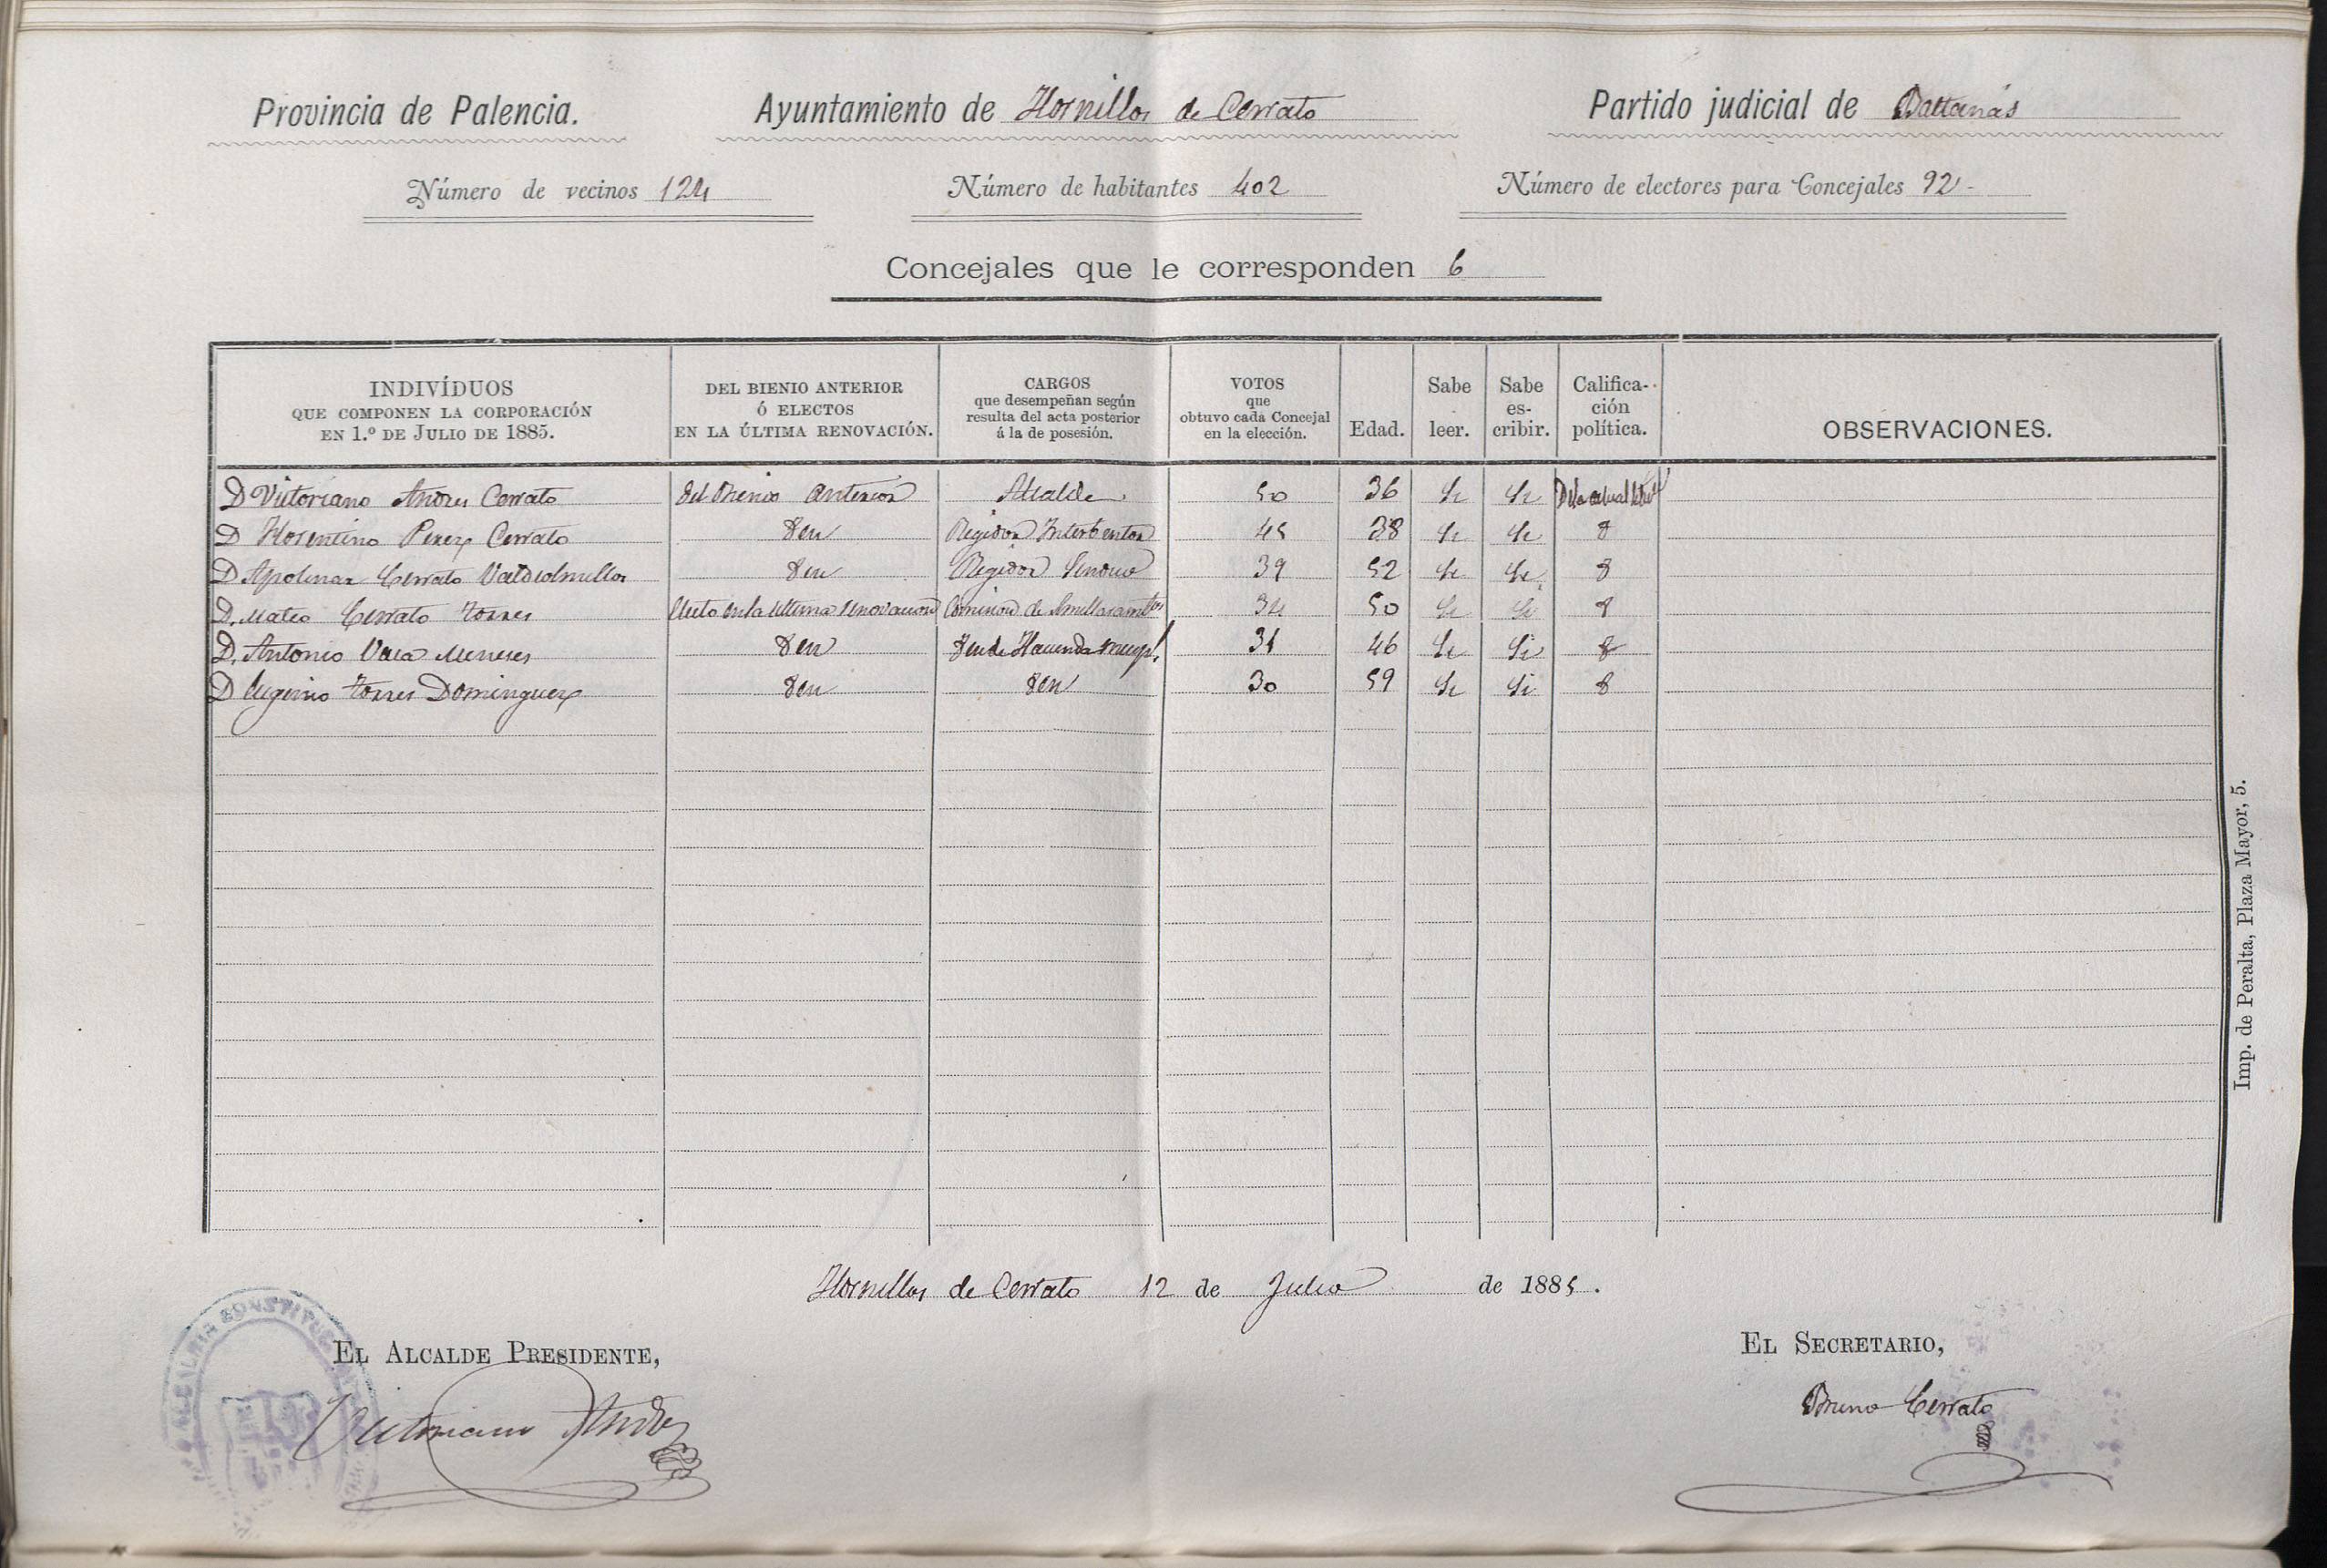 Provincia de Palencia. Ayuntamiento de Hornillos de Cerrato Partido judicial de Baltanás
Número de vecinos 124 Número de habitantes 402 Número de electores para Concejales 92
Concejales que le corresponden 6
INDIVÍDUOS QUE COMPONEN LA CORPORACIÓN EN 1.º DE JULIO DE 1885. DEL BIENIO ANTERIOR Ó ELECTOS EN LA ÚLTIMA RENOVACIÓN. CARGOS que desempeñan según resulta del acta posterior á la de posesión. VOTOS que obtuvo cada Concejal en la elección. Edad. Sabe leer. Sabe es-cribir. Califica-ción política. OBSERVACIONES.
D Victoriano Andres Cerrato Del Bienio anterior Alcalde 50 36 Si Si De la actual
D Florentino Perez Cerrato Yden Regidor Interbentor 45 38 Si Si Y
D Apolinar Cerrato Valdeolmillos Yden Regidor Sindico 39 52 Si Si Y
D. Mateo Cerrato Torres Electo en la ultima renovacion Comision de Amillaramtos 34 50 Si Si Y
D. Antonio Vara Meneses Yden Yden de Hacienda munpl 31 46 Si Si Y
D Eugenio Torres Dominguez Yden Yden 30 59 Si Si Y
Hornillos de Cerrato 12 de Julio de 1885.
EL ALCALDE PRESIDENTE, EL SECRETARIO,
Victoriano Andres Bruno Cerrato
ALCALDIA CONSTITUCIONAL
Imp. de Peralta, Plaza Mayor, 5.